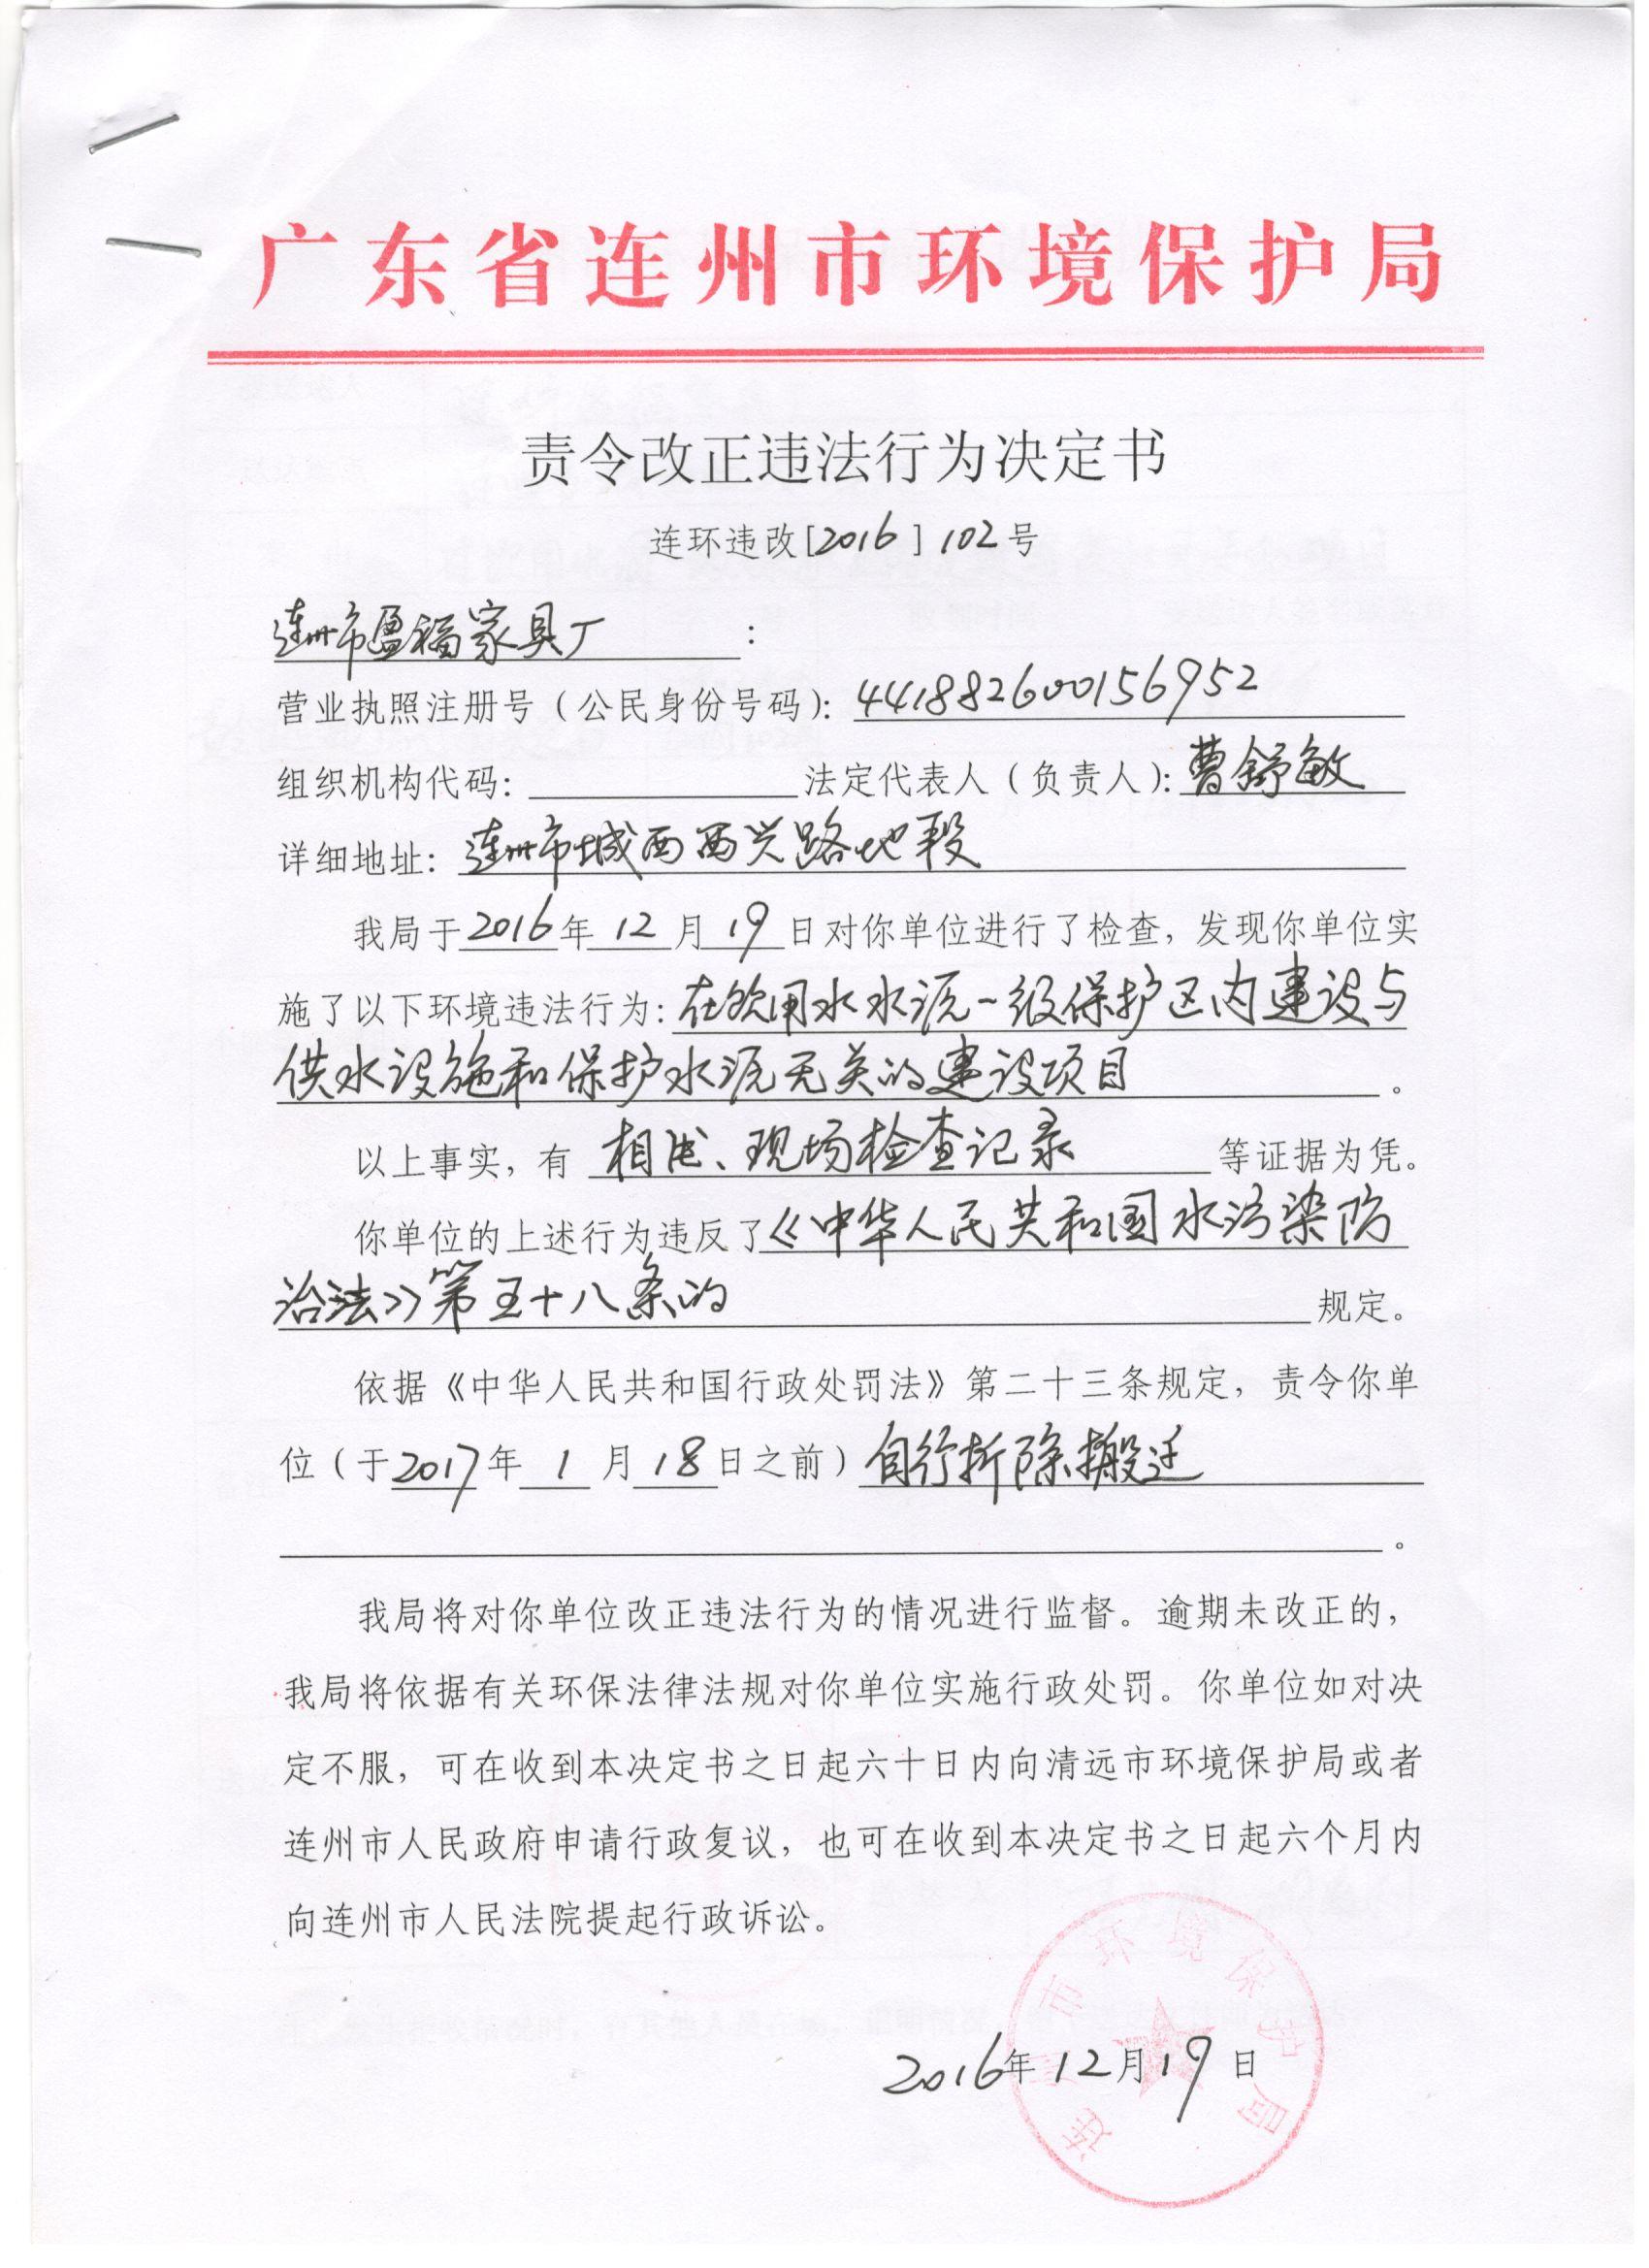 广东省连州市环境保护局
责令改正违法行为决定书
连环违改[2016]102号
连州市盈福家具厂:
营业执照注册号(公民身份号码):441882600156952
组织机构代码: 法定代表人(负责人):曹舒敏
详细地址:连州市城西西兴路地段
我局于2016年12月19日对你单位进行了检查,发现你单位实
施了以下环境违法行为:在饮用水水源一级保护区内建设与
供水设施和保护水源无关的建设项目。
以上事实,有相片、现场检查记录等证据为凭。
你单位的上述行为违反了《中华人民共和国水污染防
治法》第五十八条的规定。
依据《中华人民共和国行政处罚法》第二十三条规定,责令你单
位(于2017年1月18日之前)自行拆除搬迁
。
我局将对你单位改正违法行为的情况进行监督。逾期未改正的,
我局将依据有关环保法律法规对你单位实施行政处罚。你单位如对决
定不服,可在收到本决定书之日起六十日内向清远市环境保护局或者
连州市人民政府申请行政复议,也可在收到本决定书之日起六个月内
向连州市人民法院提起行政诉讼。
连州市环境保护局
2016年12月19日